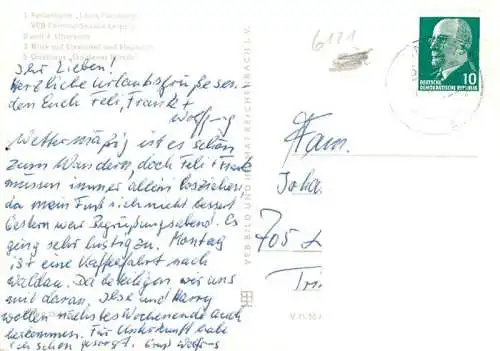 1 Ferienheim
VEB
2 und 4
3 Blick auf
5 Gasthaus
Ihr Lieben!
Herzliche Urlaubsgrüße sen-
den Euch Feli, Frank +
Wolfgang
Wettermäßig ist es schön
zum Wandern, doch Feli + Frank
müssen immer allein losziehen,
da mein Fuß sich nicht bessert.
Gestern war Begrüßungsabend. Es
ging sehr lustig zu. Montag
ist eine Kaffeefahrt nach
Waldau. Da beteiligen wir uns
mit daran. Ilse und Harry
wollen nächstes Wochenende auch
herkommen. Für Unterkunft habe
ich schon gesorgt. Gruß Wolfgang
VEB BILD UND HEIMAT REICHENBACH I. V.
V 11 50
6171
10
DEUTSCHE
DEMOKRATISCHE REPUBLIK
Fam.
Joha
705 L